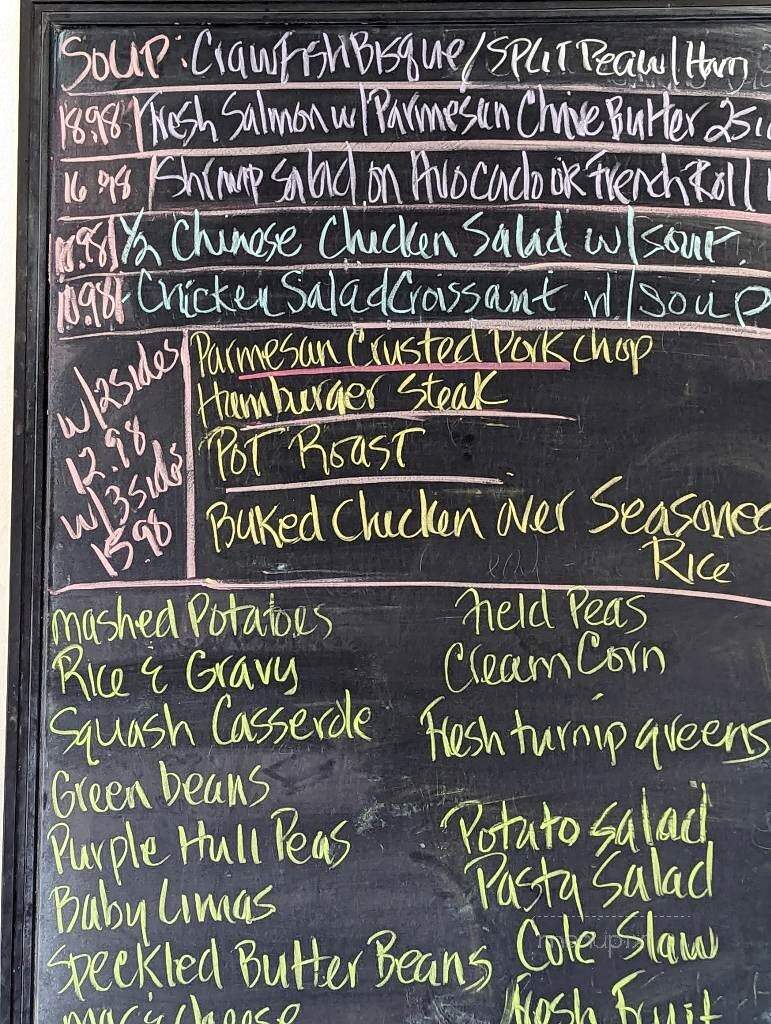 Soup: Crawfish Bisque / Split Pea w/ Ham
18.98 Fresh Salmon w/ Parmesan Chive Butter 2 Si
16.98 Shrimp Salad on Avocado or French Roll
10.98 1/2 Chinese Chicken Salad w/ soup.
10.98 Chicken Salad Croissant w/ soup
w/ 2 sides
12.98
w/ 3 sides
15.98
Parmesan Crusted Pork chop
Hamburger Steak
Pot Roast
Baked Chicken over Seasoned
Rice
Mashed Potatoes
Rice & Gravy
Squash Casserole
Green beans
Purple Hull Peas
Baby Limas
Speckled Butter Beans
Mac & cheese
Field Peas
Cream Corn
Fresh turnip greens
Potato Salad
Pasta Salad
Cole Slaw
Fresh Fruit